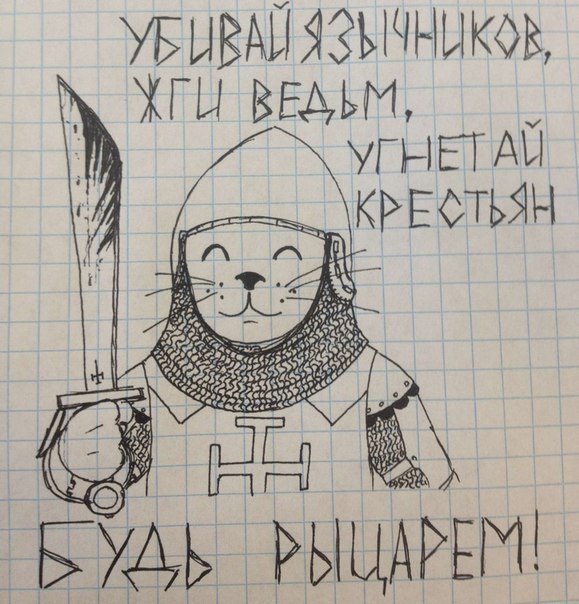 УБИВАЙ ЯЗЫЧНИКОВ,
ЖГИ ВЕДЬМ,
УГНЕТАЙ
КРЕСТЬЯН
БУДЬ РЫЦАРЕМ!